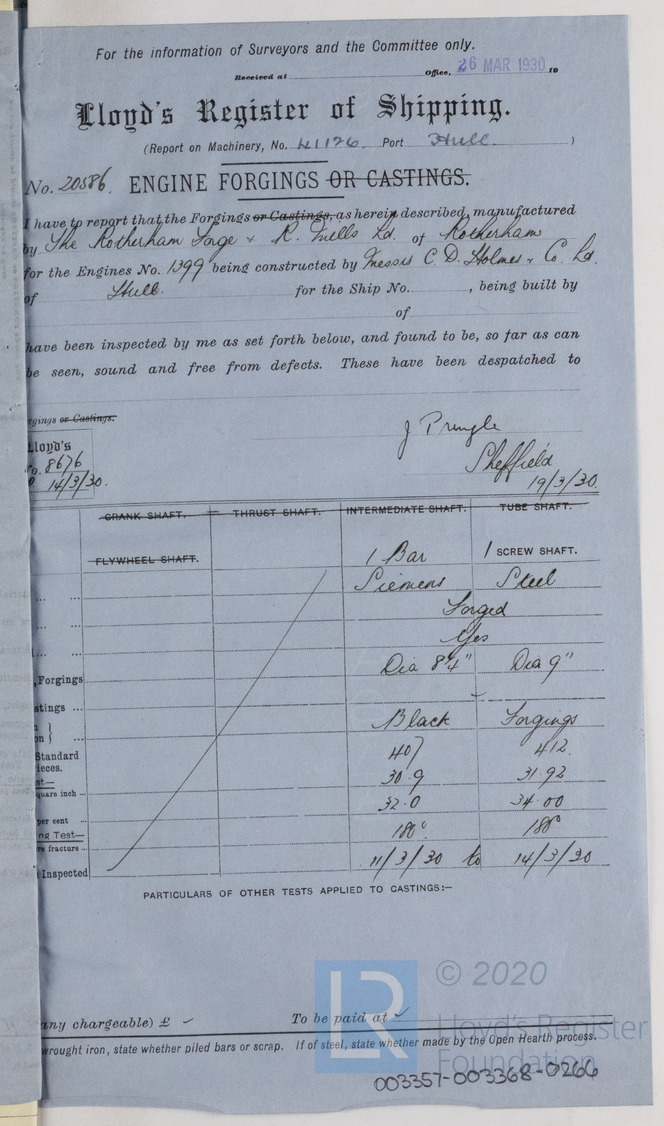 For the information of Surveyors and the Committee only.
Received at Office, 26 MAR 1930 19
Lloyd's Register of Shipping.
(Report on Machinery, No. 41126. Port Hull. )
No. 20586. ENGINE FORGINGS OR CASTINGS.
I have to report that the Forgings or Castings, as herein described, manufactured
by The Rotherham Forge & R. Mills Ld. of Rotherham
for the Engines No. 1399 being constructed by Messrs C. D. Holmes & Co. Ld.
of Hull. for the Ship No. , being built by
of
have been inspected by me as set forth below, and found to be, so far as can
be seen, sound and free from defects. These have been despatched to
rgings or Castings.
J Pringle
Lloyd's
No. 8676
14/3/30.
Sheffield
19/3/30.
CRANK SHAFT. THRUST SHAFT. INTERMEDIATE SHAFT. TUBE SHAFT.
FLYWHEEL SHAFT. 1 Bar 1 SCREW SHAFT.
Siemens Steel
Forged
Yes
Forgings Dia 8¾" Dia 9"
stings ...
Black Forgings
Standard 407 412.
ieces.
st— 30.9 31.92
quare inch ...
per cent 32.0 34.00
ng Test— 180° 180°
re fracture ...
Inspected 11/3/30 to 14/3/30
PARTICULARS OF OTHER TESTS APPLIED TO CASTINGS:—
any chargeable) £ To be paid at
wrought iron, state whether piled bars or scrap. If of steel, state whether made by the Open Hearth process.
LR
© 2020
Lloyd's Register
Foundation
003357-003368-0266